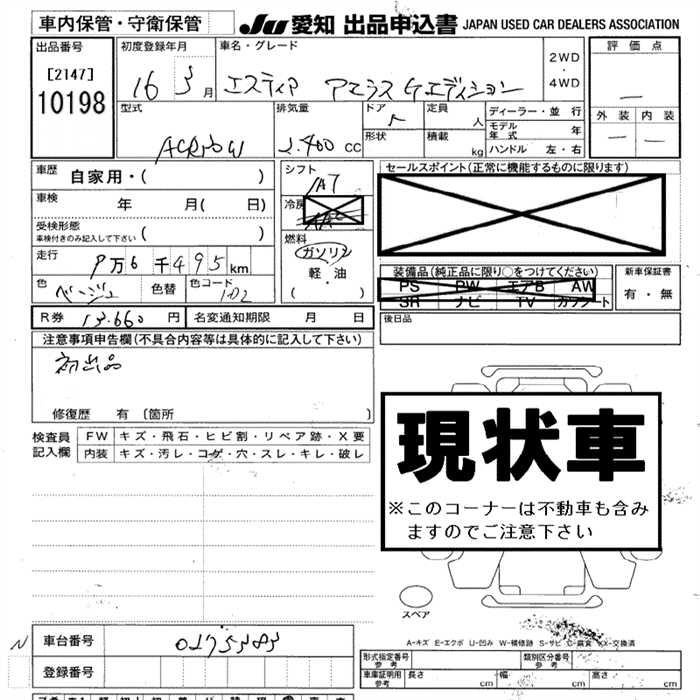 車内保管・守衛保管 JU 愛知 出品申込書 JAPAN USED CAR DEALERS ASSOCIATION
出品番号 初度登録年月 車名・グレード 2WD・4WD 評価点
[2147]
10198 16 3月 エスティマ アエラス Gエディション —
型式 排気量 ドア 定員 ディーラー・並行 外装 内装
ACR30W 2.400 cc 5 人 モデル年式 年 — —
形状 積載 kg ハンドル 左・右
車歴 自家用・( ) シフト セールスポイント(正常に機能するものに限ります)
IAT
車検 年 月( 日) 冷房 AAC
受検形態
車検付きのみ記入して下さい ( ) 燃料
走行 9万6千495km ガソリン 装備品(純正品に限り○をつけてください) 新車保証書
軽・油 PS PW エアB AW 有・無
色 ベージュ 色替 色コード ( ) SR ナビ TV カワシート
R券 13.660円 名変通知期限 月 日 後日品
注意事項申告欄(不具合内容等は具体的に記入して下さい)
初出品
修復歴 有 〔箇所 〕
検査員 FW キズ・飛石・ヒビ割・リペア跡・X要
記入欄 内装 キズ・汚レ・コゲ・穴・スレ・キレ・破レ
現状車
※このコーナーは不動車も含み
ますのでご注意下さい
スペア
A-キズ E-エクボ U-凹み W-補修跡 S-サビ C-腐食 XX-交換済
N 車台番号 0175383
登録番号
形式指定番号 参考 類別区分番号 参考
車庫証明用 参考 長さ cm 幅 cm 高さ cm